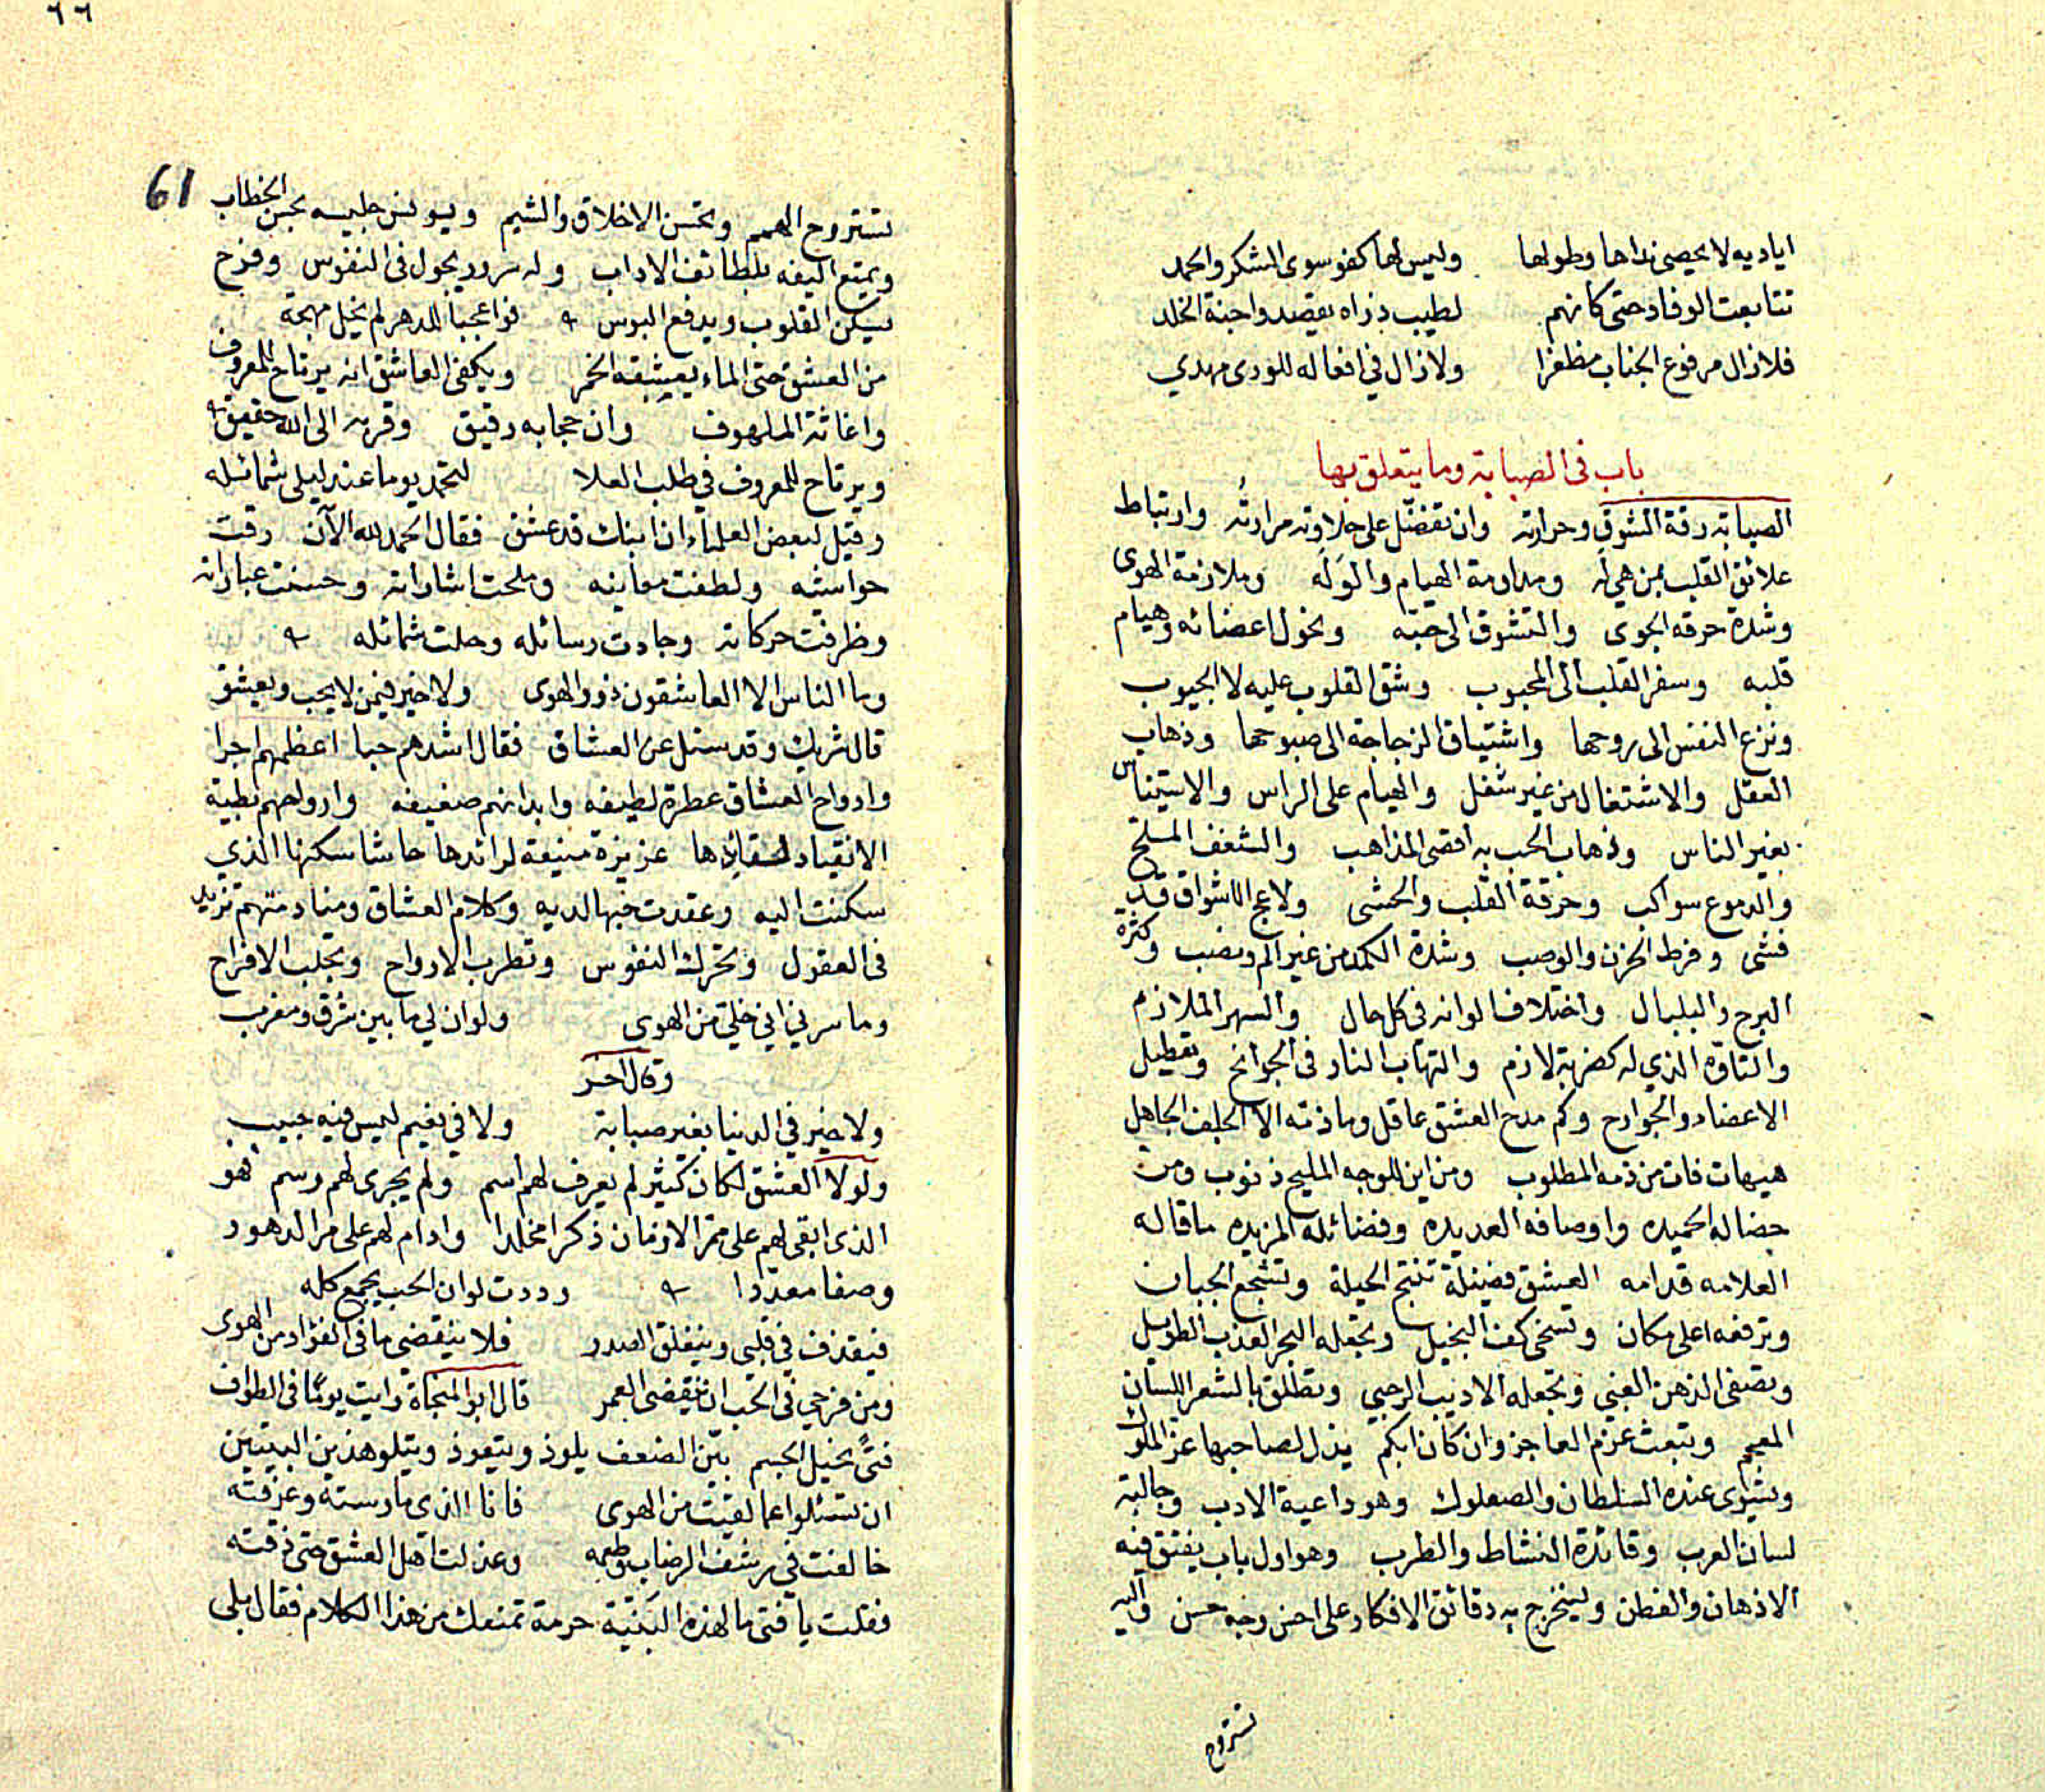 اياديه لا يحصى نداها وطولها وليس لها كفو سوى الشكر والحمد
تتابعت الوفاد حتى كانهم لطيب ذراه يقصدوا جنة الخلد
فلا زال مرفوع الجناب مظفرا ولا زال في افعاله للورى مهدي
باب في الصبابة وما يتعلق بها
الصبابة رقة الشوق وحرارته وان تفضل على حلاوته مرارته وارتباط
علائق القلب بمن هي له ومداومة الهيام والوله وملازمة الهوى
وشدة حرقة الجوى والتشوق الى حبه ونحول اعضائه وهيام
قلبه وسفر القلب الى المحبوب وشق القلوب عليه لا الجيوب
ونزع النفس الى روحها واشتياق الزجاجة الى صبوحها وذهاب
العقل والاشتغال من غير شغل والهيام على الراس والاستيناس
بغير الناس وذهاب الحب به اقصى المذاهب والشغف الملح
والدموع سواكب وحرقة القلب والحشى ولاعج الاشواق قد
فشى وفرط الحزن والوصب وشدة الكمد من غير الم ونصب وكثرة
البرح والبلبال واختلاف الوانه في كل حال والسهر الملازم
والتاوه الذي له كضربة لازم والتهاب النار في الجوانح وتعطيل
الاعضاء والجوارح وكم مدح العشق عاقل وما ذمه الا الجلف الجاهل
هيهات فات من ذمه المطلوب ومن اين للوجه المليح ذنوب ومن
خصاله الحميده واوصافه العديده وفضائله المزيده ما قاله
العلامه قدامه العشق فضيلة تنتج الحيلة وتشجع الجبان
وترفعه اعلى مكان وتسخى كف البخيل وتجعله البحر العذب الطويل
وتصفى الذهن الغبي وتجعله الاديب الرجبي وتطلق بالشعر اللسان
المعجم وتبعث عزم العاجز وان كان ابكم يذل لصاحبها عز الملوك
ويستوى عنده السلطان والصعلوك وهو داعية الادب وجالبة
لسان العرب وقائدة النشاط والطرب وهو اول باب يفتق فيه
الاذهان والفطن وليخرج به دقائق الافكار على احسن وجه حسن واليه
تستروح
٦٦
61
تستروح الهمم وتحسن الاخلاق والشيم ويونس جليسه بحسن الخطاب
ويمتع اليفه بلطائف الاداب وله سرور يجول في النفوس وفرح
يسكن القلوب ويدفع البوس فواعجبا للدهر لم يخل مهجة
من العشق حتى الماء يعشقه الخمر ويكفى العاشق انه يرتاح للمعروف
واغاثة الملهوف وان حجابه رقيق وقربه الى الله حقيق
ويرتاح للمعروف في طلب العلا لتحمد يوما عند ليلى شمائله
وقيل لبعض العلماء ان ابنك قد عشق فقال الحمد لله الآن رقت
حواشيه ولطفت معانيه وملحت اشاراته وحسنت عباراته
وظرفت حركاته وجادت رسائله وحلت شمائله
وما الناس الا العاشقون ذوو الهوى ولا خير فيمن لا يحب ويعشق
قال شريك وقد سئل عن العشاق فقال اشدهم حبا اعظمهم اجرا
وارواح العشاق عطرة لطيفه وابدانهم ضعيفه وارواحهم بطية
الانقياد لقائدها عزيزة منيعة لرائدها حاشا سكنها الذي
سكنت اليه وعقدت حبها لديه وكلام العشاق ومنادمتهم تزيد
في العقول وتحرك النفوس وتطرب الارواح وتجلب الافراح
وما سرني اني خلي من الهوى ولو ان لي ما بين شرق ومغرب
وقال اخر
ولا خير في الدنيا بغير صبابة ولا في نعيم ليس فيه حبيب
ولولا العشق لكان كثير لم يعرف لهم اسم ولم يجرى لهم رسم فهو
الذى ابقى لهم على ممر الازمان ذكرا مخلدا وادام لهم على مر الدهور
وصفا معددا وددت لو ان الحب يجمع كله
فيقذف في قلبي وينفلق الصدر فلا ينقضي ما في الفؤاد من الهوى
ومن فرحي في الحب ان ينقضي العمر قال ابو المنجاة رايت يوما في الطواف
فتى نحيل الجسم بين الضعف يلوذ ويتعوذ ويتلو هذين البيتين
ان تسئلوا عما لقيت من الهوى فانا الذى مارسته وعرفته
خالفت في رشف الرضاب وطعمه وعذلت اهل العشق حتى ذقته
فقلت يا فتى ما لهذه البنية حرمة تمنعك من هذا الكلام فقال بلى